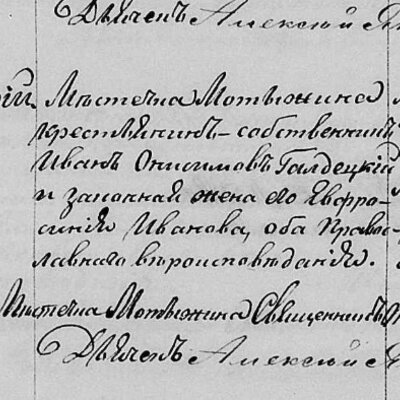 Дьяченъ Алексій
ій. Мѣстечка Мотыжина
крестьянинъ-собственникъ
Иванъ Онисимовъ Галдецкій
и законная жена его Евфро-
синія Иванова, оба Право-
славнаго вѣроисповѣданія.
Мѣстечка Мотыжина Священникъ
Дьяченъ Алексій